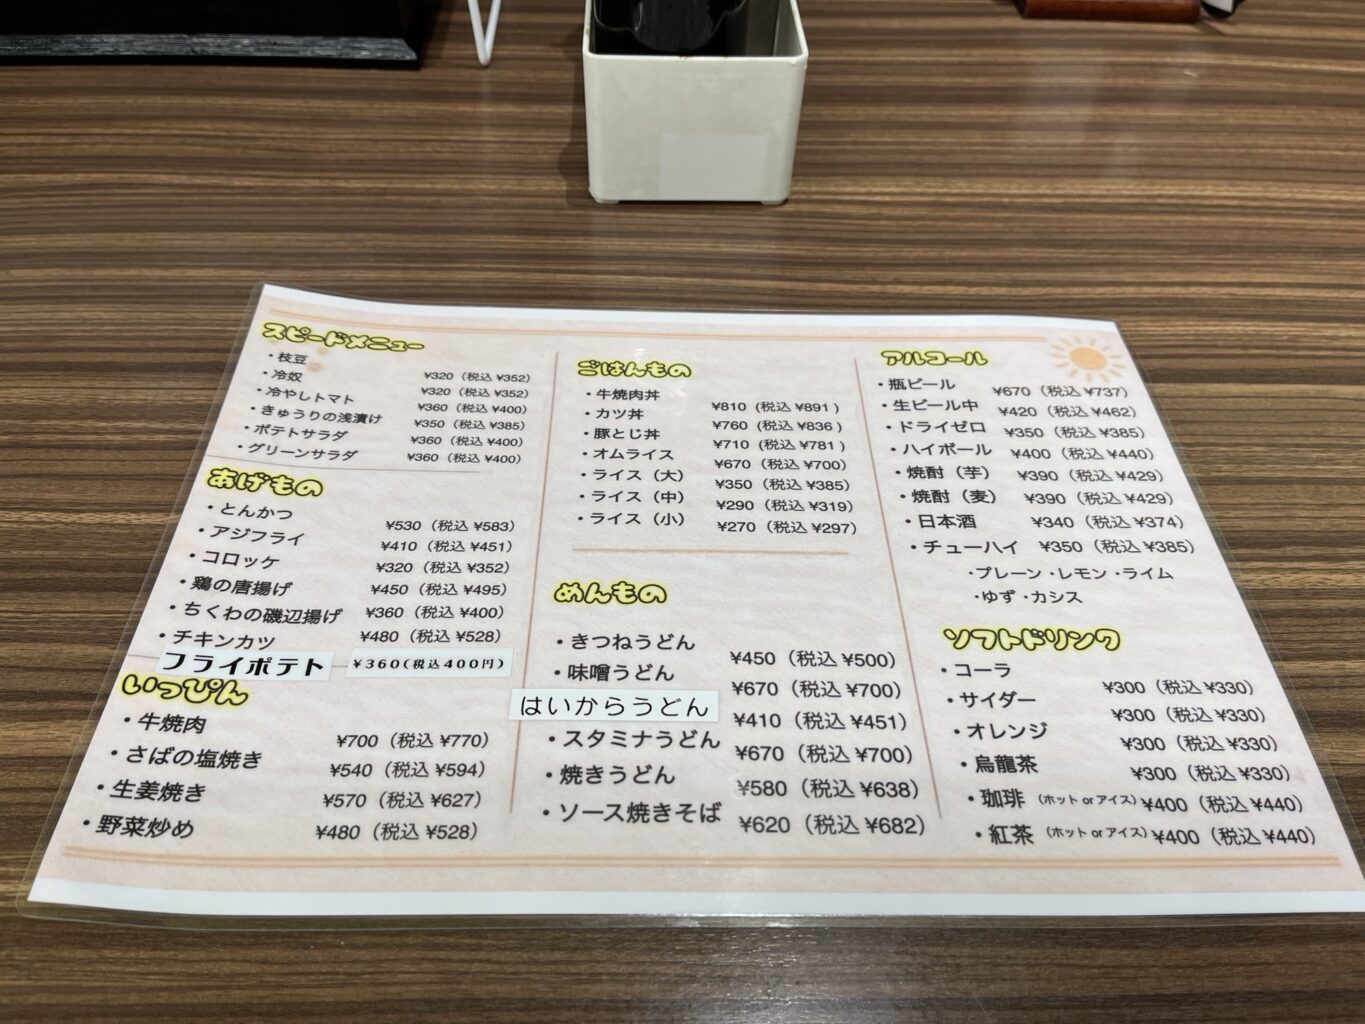 スピードメニュー
・枝豆 ¥320（税込 ¥352）
・冷奴 ¥320（税込 ¥352）
・冷やしトマト ¥360（税込 ¥400）
・きゅうりの浅漬け ¥350（税込 ¥385）
・ポテトサラダ ¥360（税込 ¥400）
・グリーンサラダ ¥360（税込 ¥400）
あげもの
・とんかつ ¥530（税込 ¥583）
・アジフライ ¥410（税込 ¥451）
・コロッケ ¥320（税込 ¥352）
・鶏の唐揚げ ¥450（税込 ¥495）
・ちくわの磯辺揚げ ¥360（税込 ¥400）
・チキンカツ ¥480（税込 ¥528）
フライポテト ¥360(税込400円)
いっぴん
・牛焼肉 ¥700（税込 ¥770）
・さばの塩焼き ¥540（税込 ¥594）
・生姜焼き ¥570（税込 ¥627）
・野菜炒め ¥480（税込 ¥528）
ごはんもの
・牛焼肉丼 ¥810（税込 ¥891 ）
・カツ丼 ¥760（税込 ¥836 ）
・豚とじ丼 ¥710（税込 ¥781 ）
・オムライス ¥670（税込 ¥700）
・ライス（大） ¥350（税込 ¥385）
・ライス（中） ¥290（税込 ¥319）
・ライス（小） ¥270（税込 ¥297）
めんもの
・きつねうどん ¥450（税込 ¥500）
・味噌うどん ¥670（税込 ¥700）
はいからうどん ¥410（税込 ¥451）
・スタミナうどん ¥670（税込 ¥700）
・焼きうどん ¥580（税込 ¥638）
・ソース焼きそば ¥620（税込 ¥682）
アルコール
・瓶ビール ¥670（税込 ¥737）
・生ビール中 ¥420（税込 ¥462）
・ドライゼロ ¥350（税込 ¥385）
・ハイボール ¥400（税込 ¥440）
・焼酎（芋） ¥390（税込 ¥429）
・焼酎（麦） ¥390（税込 ¥429）
・日本酒 ¥340（税込 ¥374）
・チューハイ ¥350（税込 ¥385）
・プレーン ・レモン ・ライム
・ゆず ・カシス
ソフトドリンク
・コーラ ¥300（税込 ¥330）
・サイダー ¥300（税込 ¥330）
・オレンジ ¥300（税込 ¥330）
・烏龍茶 ¥300（税込 ¥330）
・珈琲（ホット or アイス）¥400（税込 ¥440）
・紅茶（ホット or アイス）¥400（税込 ¥440）